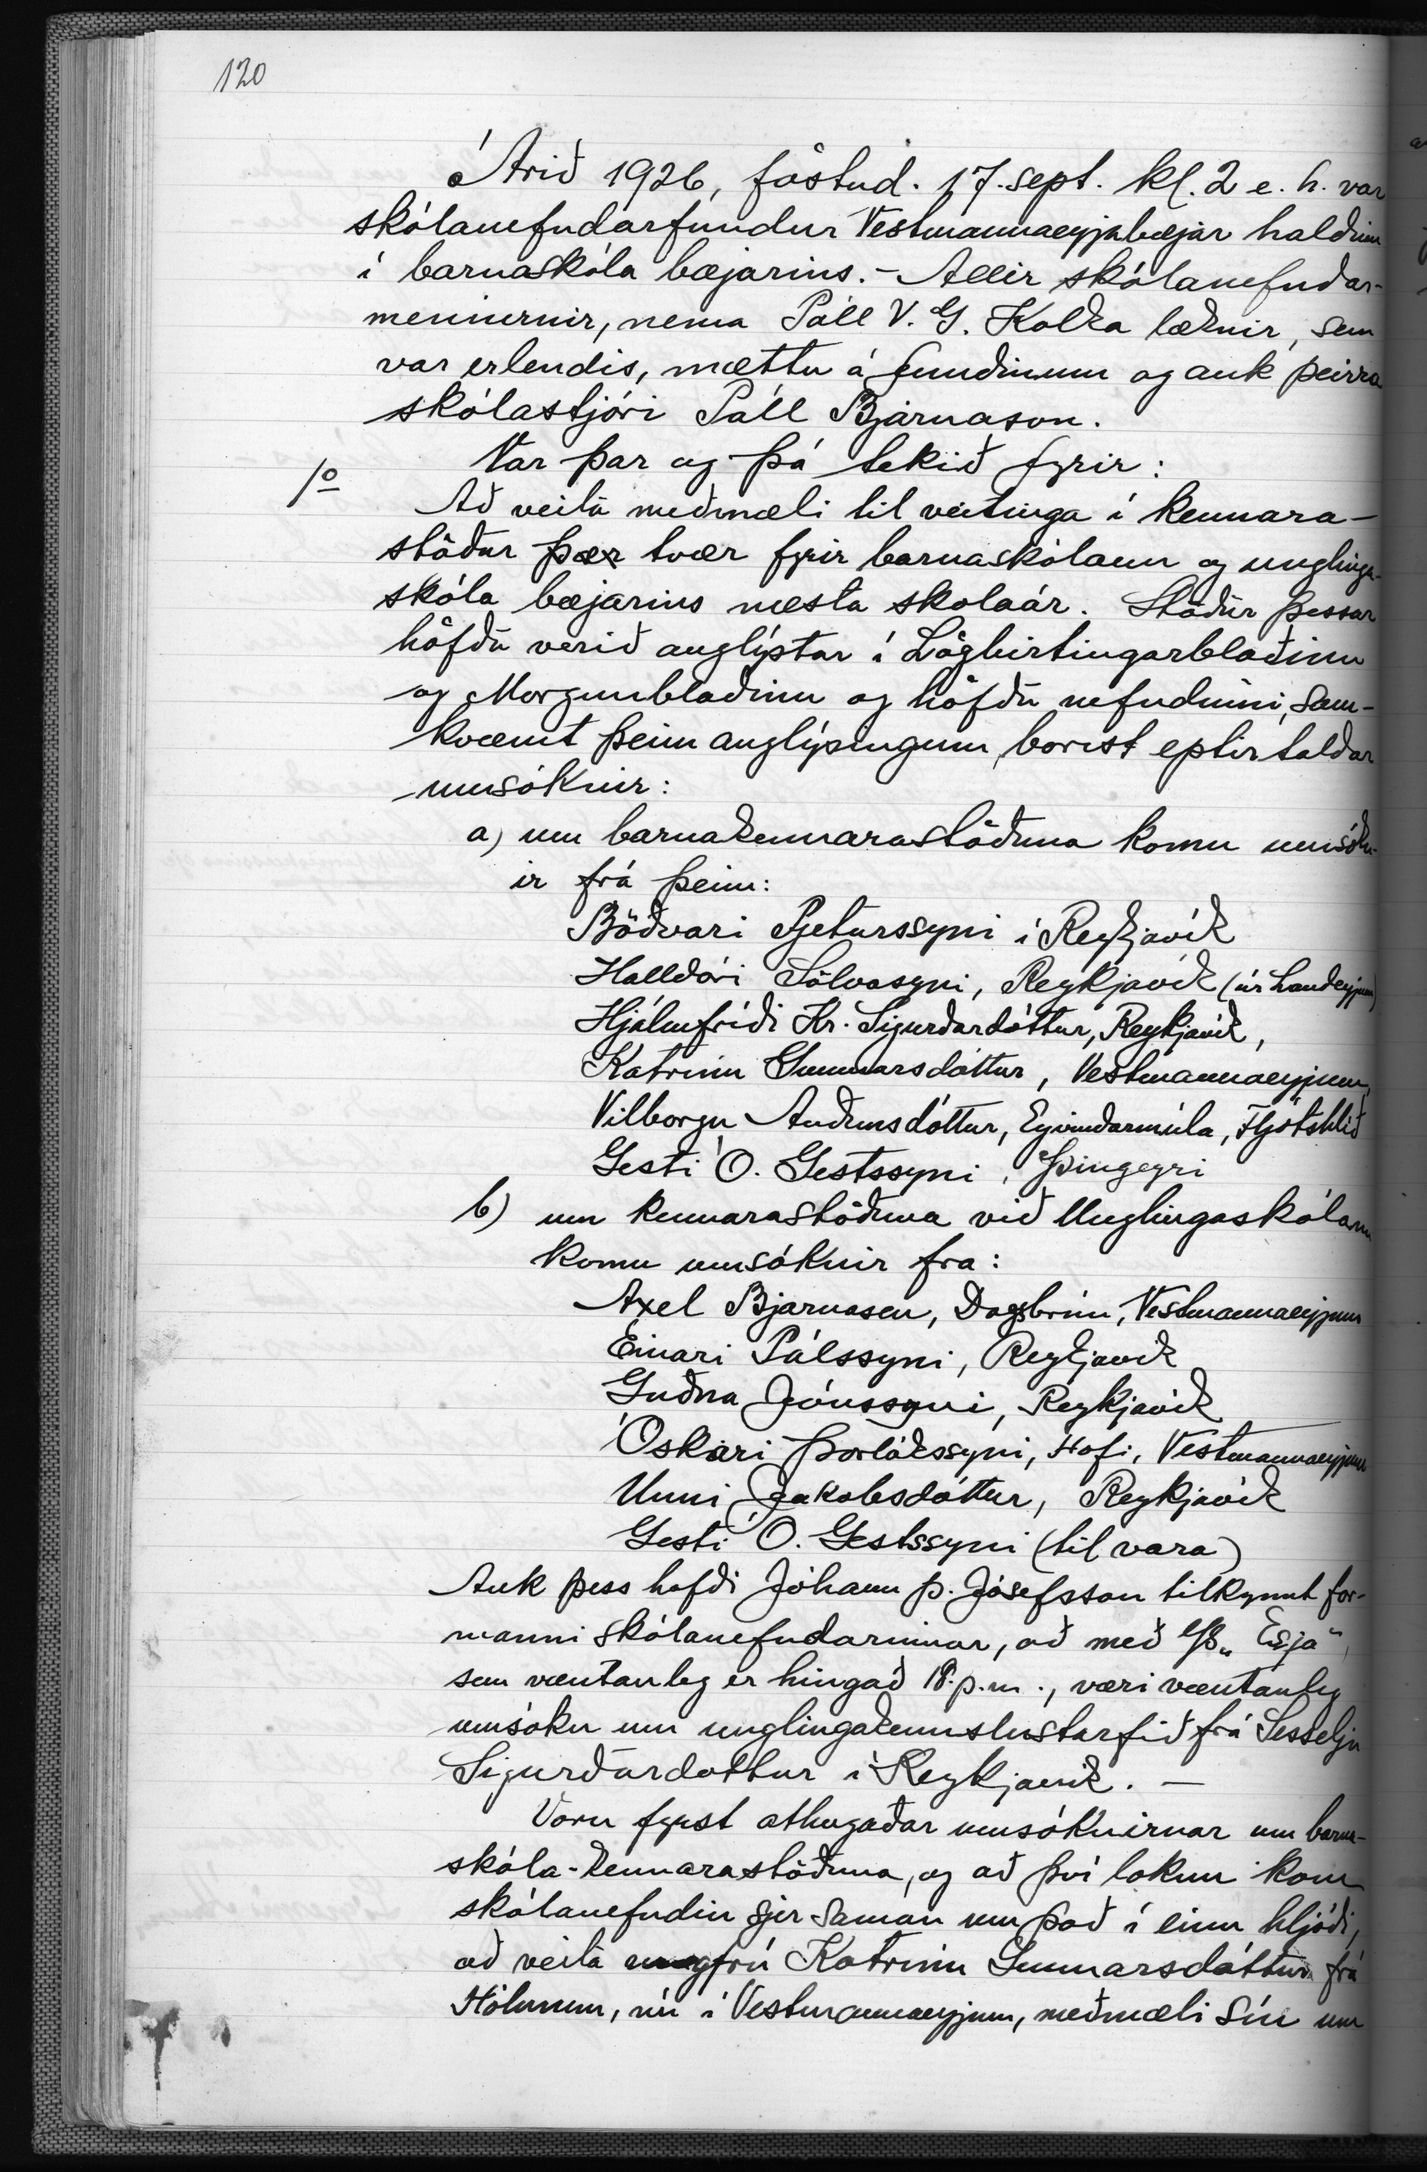 120
Árið 1926, föstud. 17. sept. kl. 2 e. h. var
skólanefndarfundur Vestmannaeyjabæjar haldinn
í barnaskóla bæjarins. - Allir skólanefndar-
mennirnir, nema Páll V. G. Kolka læknir, sem
var erlendis, mættu á fundinum og auk þeirra
skólastjóri Páll Bjarnason.
Var þar og þá tekið fyrir:
1º
Að veita meðmæli til veitinga í kennara-
stöður þær tvær fyrir barnaskólann og unglinga-
skóla bæjarins næsta skólaár. Stöður þessar
höfðu verið auglýstar í Lögbirtingarblaðinu
og Morgunblaðinu og höfðu nefndinni, sam-
kvæmt þeim auglýsingum, borist eptir taldar
umsóknir:
a) um barnakennarastöðuna komu umsókn-
ir frá þeim:
Böðvari Pjeturssyni í Reykjavík
Halldóri Sölvasyni, Reykjavík (úr Landeyjum)
Hjálmfríði Kr. Sigurðardóttur, Reykjavík,
Katrínu Gunnarsdóttur, Vestmannaeyjum,
Vilborgu Auðunsdóttur, Eyvindarmúla, Fljótshlíð
Gesti Ó. Gestssyni, Þingeyri
b) um kennarastöðuna við Unglingaskólann
komu umsóknir fra:
Axel Bjarnasen, Dagsbrún, Vestmannaeyjum
Einari Pálssyni, Reykjavík
Guðna Jónssyni, Reykjavík
Óskari Þorlákssyni, Hofi, Vestmannaeyjum
Unni Jakobsdóttur, Reykjavík
Gesti Ó. Gestssyni (til vara)
Auk þess hafði Jóhann Þ. Jósefsson tilkynnt for-
manni skólanefndarinnar, að með e/s „Esja",
sem væntanleg er hingað 18. þ.m., væri væntanleg
umsókn um unglingakennslustarfið frá Sesselju
Sigurðardottur í Reykjavík. -
Voru fyrst athugaðar umsóknirnar um barna-
skóla-kennarastöðuna, og að því loknu kom
skólanefndin sjer saman um það í einu hljóði,
að veita ungfrú Katrínu Gunnarsdóttur frá
Hólmum, nú í Vestmannaeyjum, meðmæli sín um